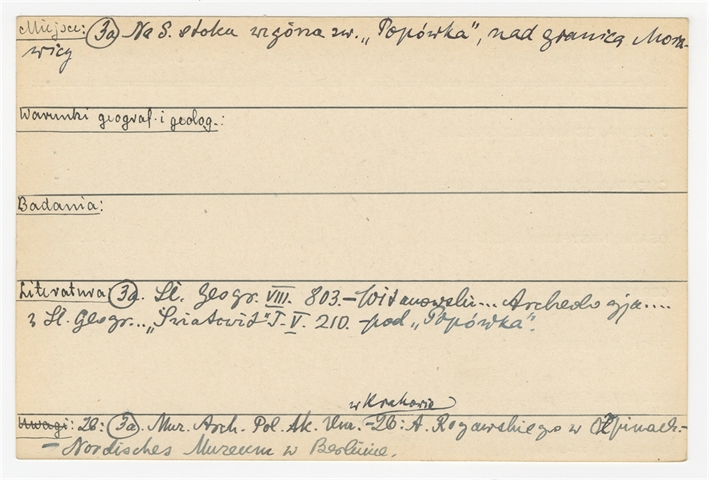 Miejsce: 3a) Na S. stoku wzgórza zw. „Popówka", nad granicą Mora-
wicy
Warunki geograf. i geolog.:
Badania:
Literatura: 3a. Sł. Geogr. VIII. 803. - Witanowski... Archeologja....
z Sł. Geogr... „Światowit" T. V. 210. - pod „Popówka".
w Krakowie
Uwagi: Zb: 3a. Muz. Arch. Pol. Ak. Um. - Zb: A. Rogawskiego w Ożpinach -
- Nordisches Muzeum w Berlinie.